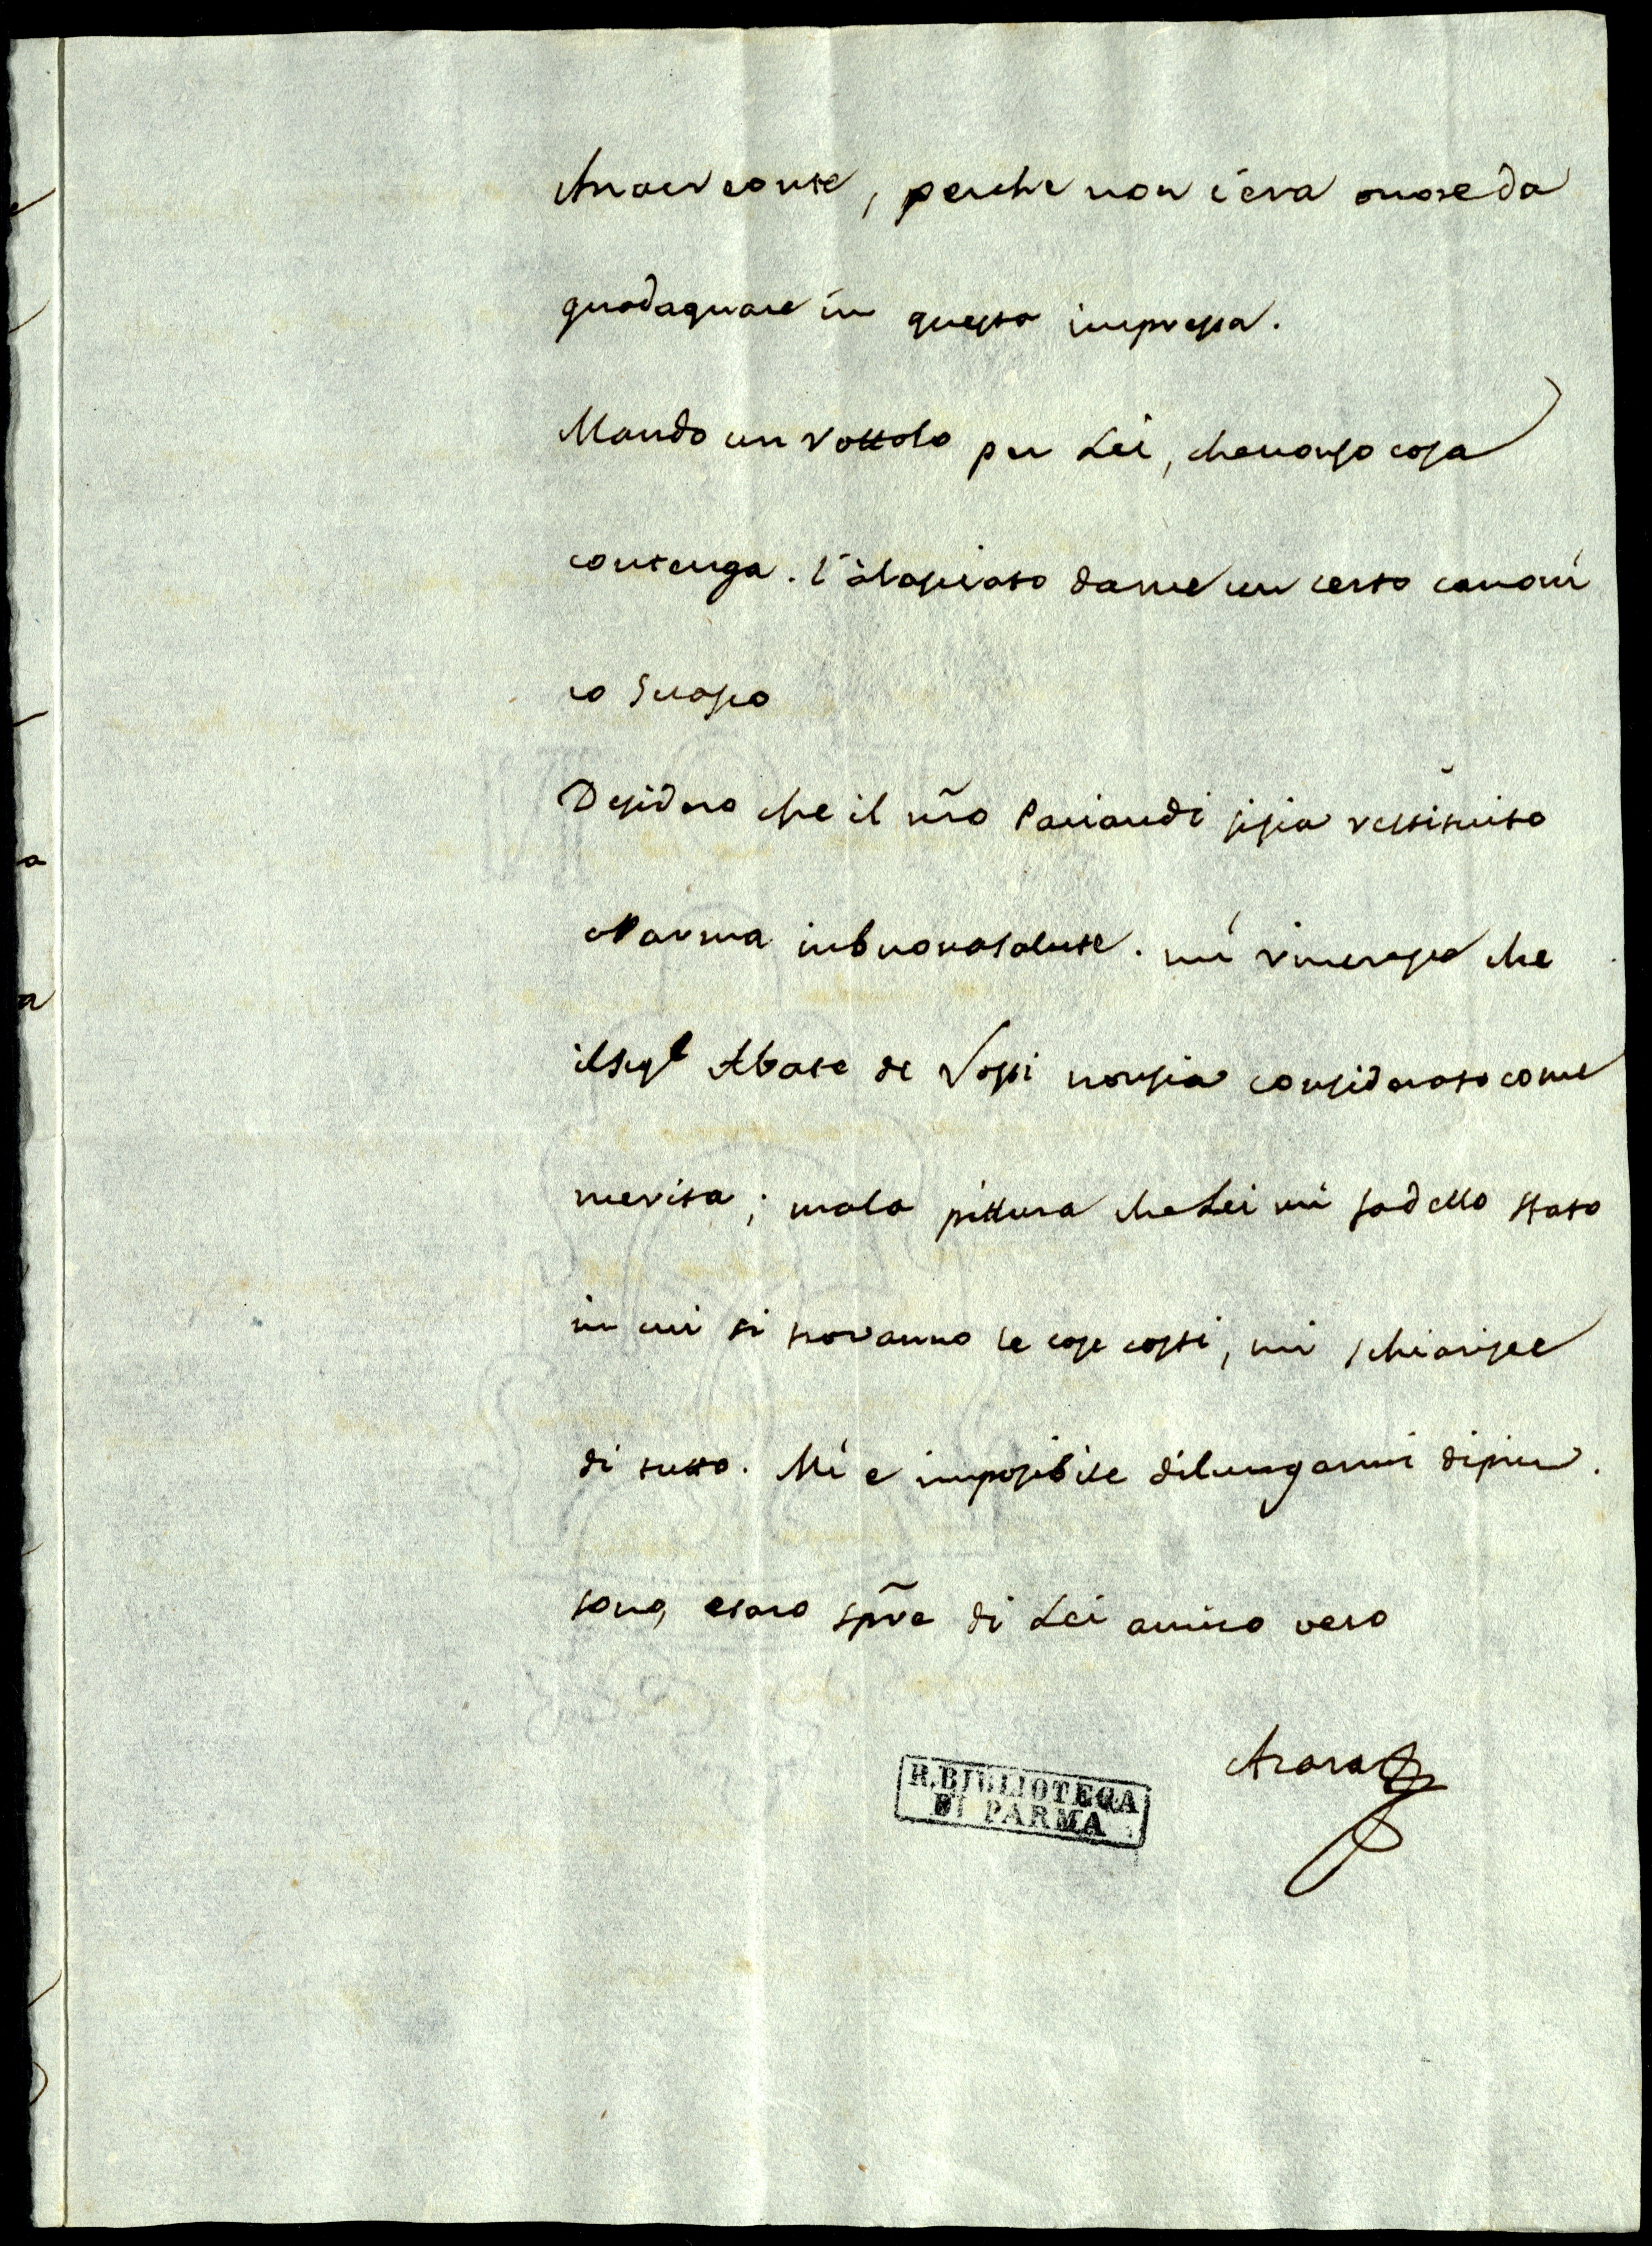 Anacreonte, perche non c'era onore da
guadagnare in questa impresa.
Mando un rottolo per Lei, che non so cosa
contenga. l'à lasciato da me un certo canoni
co
Desidero che il nr̃o Paciaudi si sia restituito
a Parma in buona salute. mi rincresce che
il Sigr Abate de Rossi non sia considerato come
merita; ma la pittura che Lei mi fa dello stato
in cui si trovanno le cose costi, mi schiarisce
di tutto. Mi e imposibile dilungarmi di piu.
sono, e saro sp̃re di Lei amico vero
Azara
R. BIBLIOTECA
DI PARMA